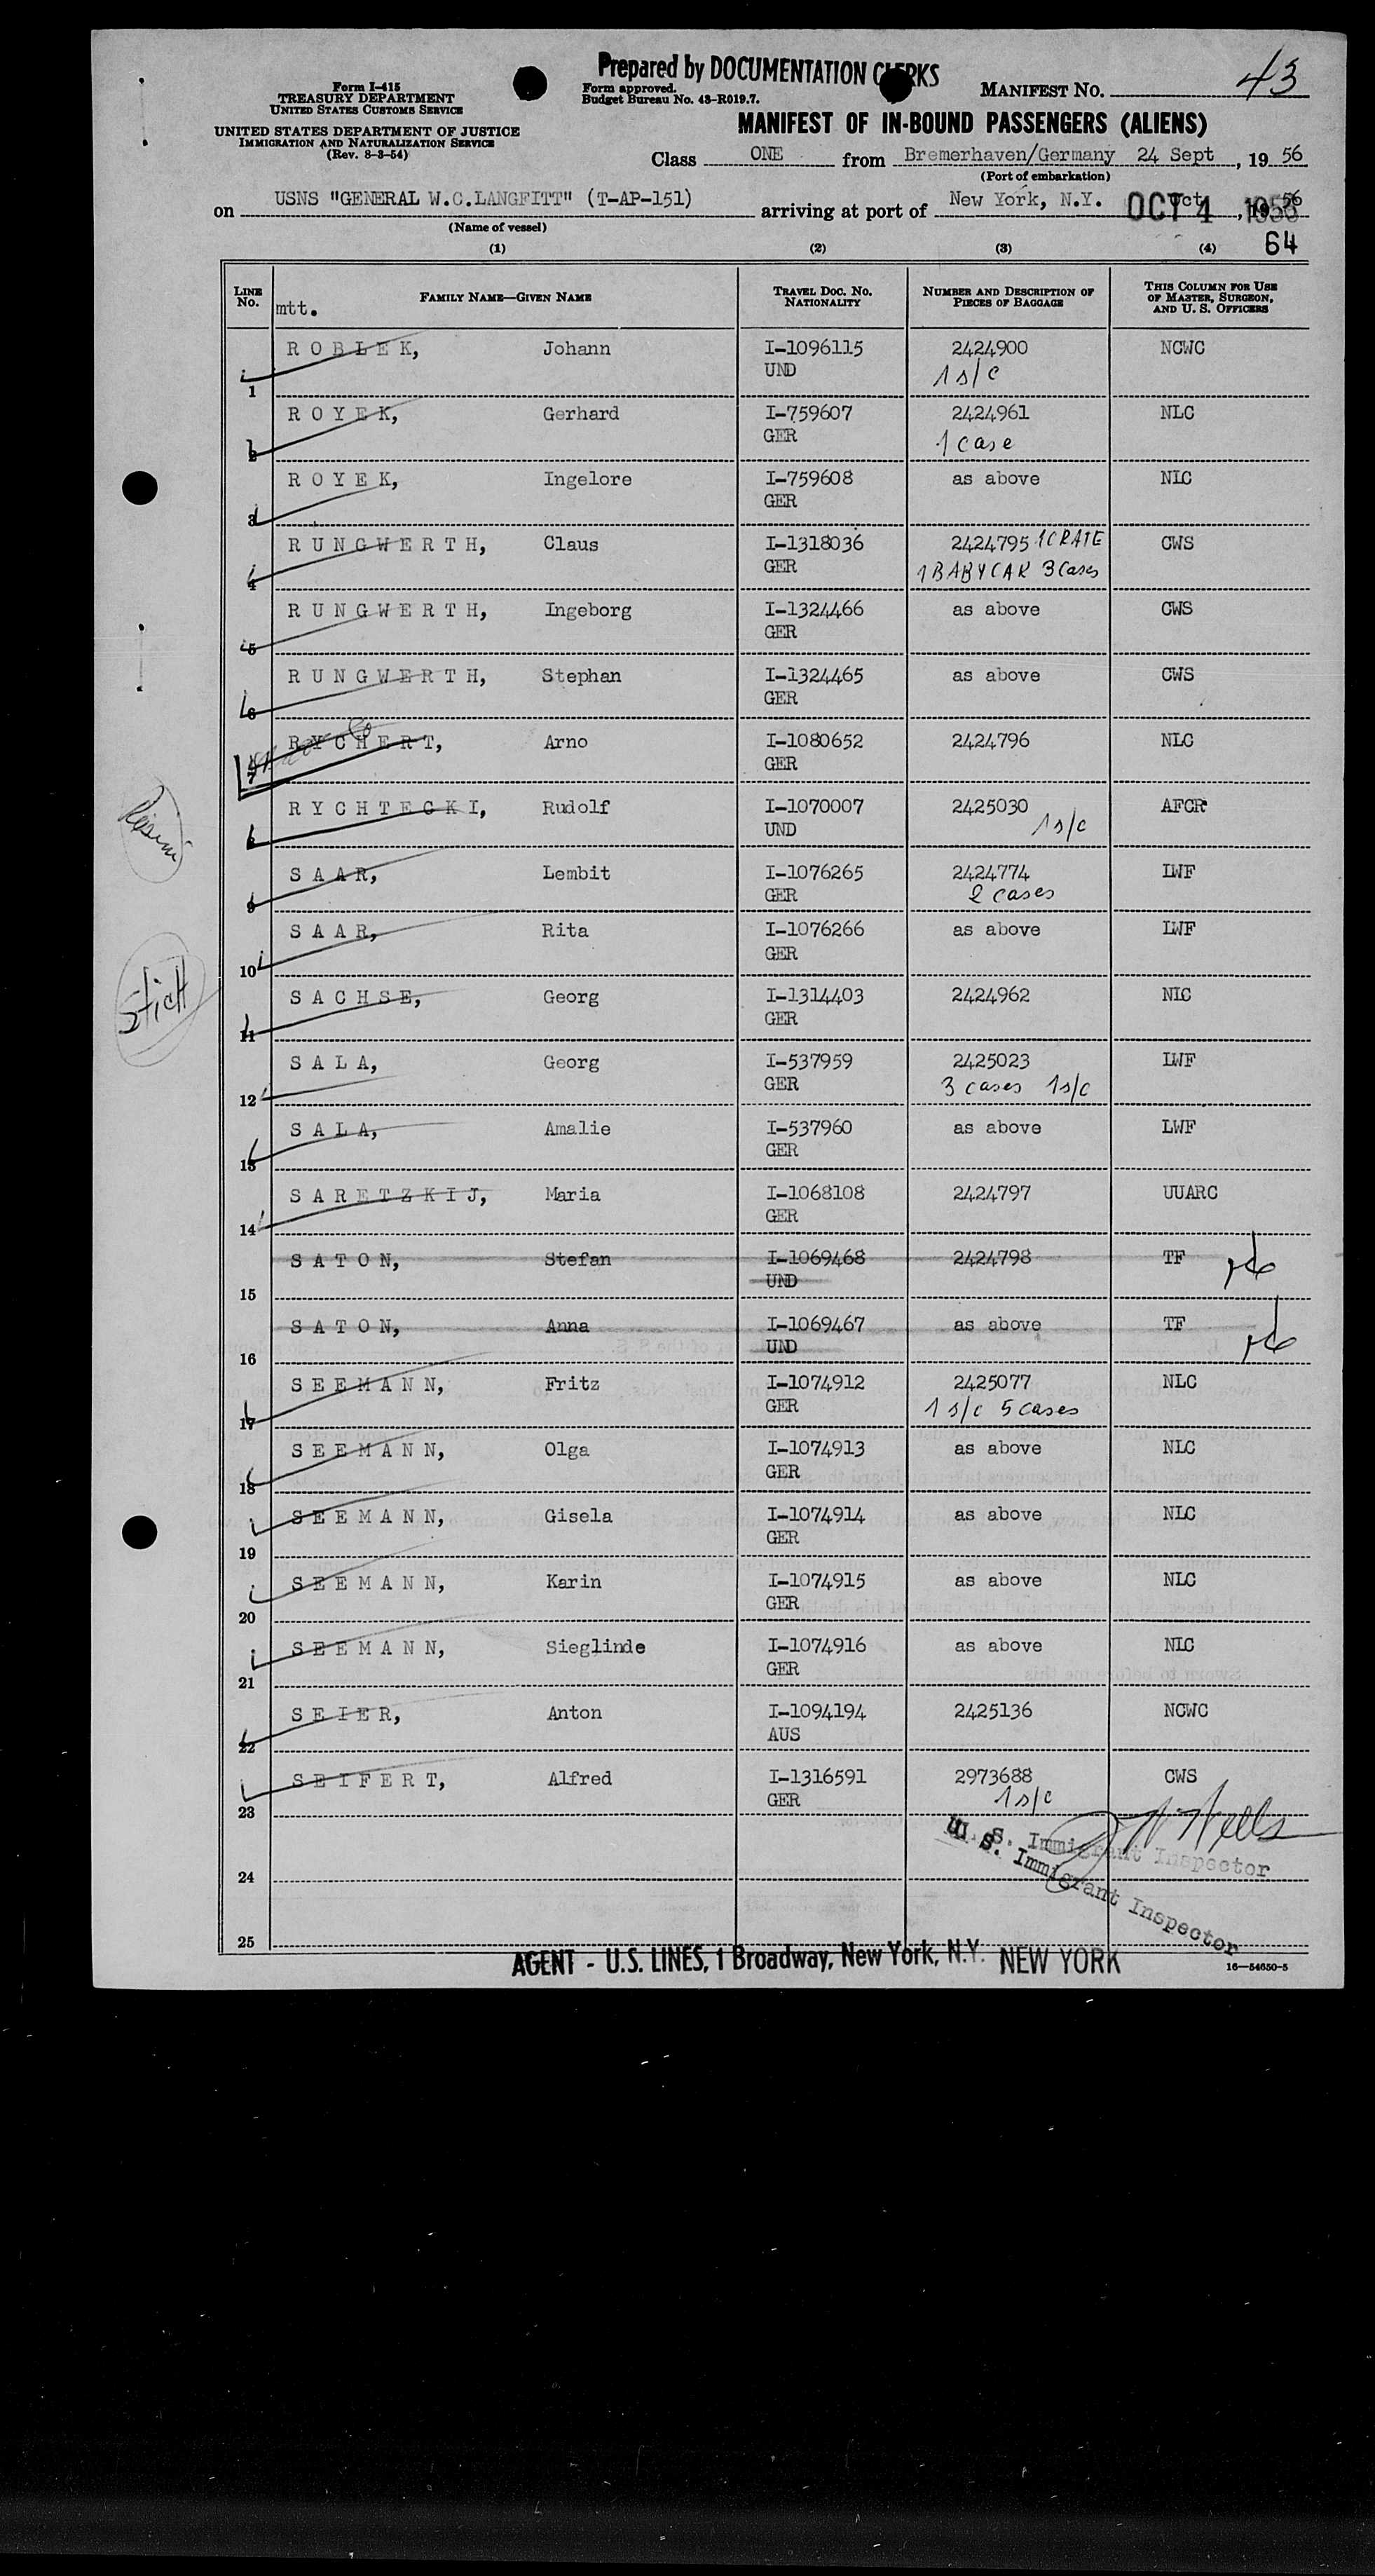 Prepared by DOCUMENTATION CLERKS
Form I-415
TREASURY DEPARTMENT
UNITED STATES CUSTOMS SERVICE
Form approved.
Budget Bureau No. 43-R019.7.
MANIFEST No. 43
UNITED STATES DEPARTMENT OF JUSTICE
IMMIGRATION AND NATURALIZATION SERVICE
(Rev. 8-3-54)
MANIFEST OF IN-BOUND PASSENGERS (ALIENS)
Class ONE from Bremerhaven/Germany 24 Sept, 19 56
(Port of embarkation)
on USNS "GENERAL W.C.LANGFITT" (T-AP-151) arriving at port of New York, N.Y. OCT 4 Oct, 19 56
(Name of vessel)
(1) (2) (3) (4) 64
LINE No. mtt. FAMILY NAME—GIVEN NAME TRAVEL DOC. NO. NATIONALITY NUMBER AND DESCRIPTION OF PIECES OF BAGGAGE THIS COLUMN FOR USE OF MASTER, SURGEON, AND U. S. OFFICERS
R O B L E K, Johann I-1096115 2424900 NCWC
1 UND 1 s/c
R O Y E K, Gerhard I-759607 2424961 NLC
2 GER 1 case
R O Y E K, Ingelore I-759608 as above NLC
3 GER
R U N G W E R T H, Claus I-1318036 2424795 1 CRATE CWS
4 GER 1 BABYCAR 3 Cases
R U N G W E R T H, Ingeborg I-1324466 as above CWS
5 GER
R U N G W E R T H, Stephan I-1324465 as above CWS
6 GER
R Y C H E R T, Arno I-1080652 2424796 NLC
7 GER
R Y C H T E C K I, Rudolf I-1070007 2425030 AFCR
UND 1 s/c
S A A R, Lembit I-1076265 2424774 LWF
9 GER 2 cases
S A A R, Rita I-1076266 as above LWF
10 GER
S A C H S E, Georg I-1314403 2424962 NLC
11 GER
Stich
S A L A, Georg I-537959 2425023 LWF
12 GER 3 cases 1 s/c
S A L A, Amalie I-537960 as above LWF
13 GER
S A R E T Z K I J, Maria I-1068108 2424797 UUARC
14 GER
S A T O N, Stefan I-1069468 2424798 TF
15 UND
S A T O N, Anna I-1069467 as above TF
16 UND
S E E M A N N, Fritz I-1074912 2425077 NLC
17 GER 1 s/c 5 cases
S E E M A N N, Olga I-1074913 as above NLC
18 GER
S E E M A N N, Gisela I-1074914 as above NLC
19 GER
S E E M A N N, Karin I-1074915 as above NLC
20 GER
S E E M A N N, Sieglinde I-1074916 as above NLC
21 GER
S E I E R, Anton I-1094194 2425136 NCWC
22 AUS
S E I F E R T, Alfred I-1316591 2973688 CWS
23 GER 1 s/c
U. S. Immigrant Inspector
U. S. Immigrant Inspector
24
25
AGENT - U.S. LINES, 1 Broadway, New York, N.Y. NEW YORK
16—54650-5